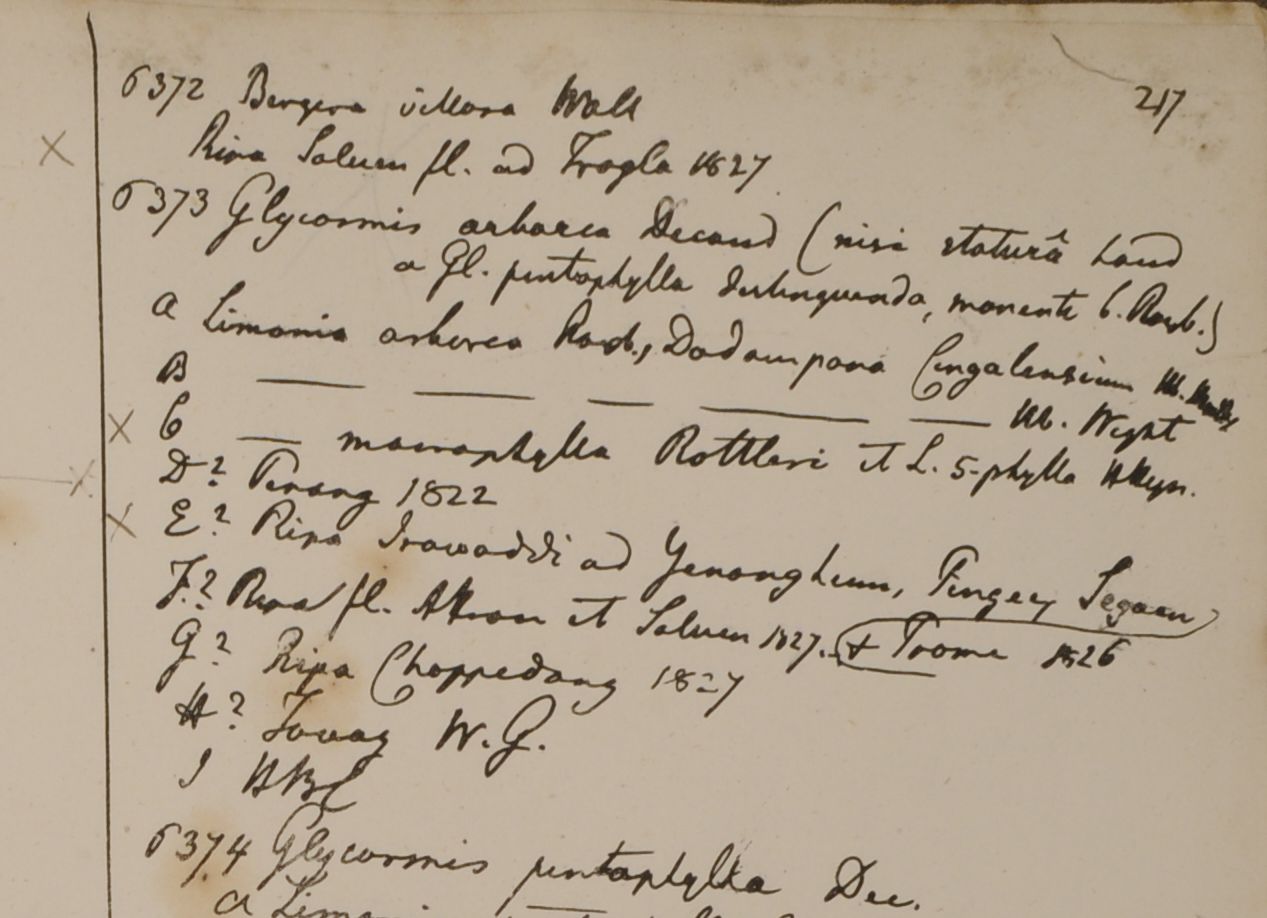 217
6372 Bergera villosa Wall
Ripa Saluen fl. ad Trogla 1827
6373 Glycosmis arborea Decand (nisi staturâ haud
a Gl. pentaphylla distinguenda, monente b. Roxb.)
a Limonia arborea Roxb., Dodampana Cingalensium Hb.
B — — — — — Hb. Wight
C — macrophylla Rottleri et L. 5-phylla HHeyn.
D? Penang 1822
E? Ripa Irawaddi ad Yenangheum, Segaen
F? Ripa fl. Attran et Saluen 1827. + Prome 1826
G? Ripa Choppedong 1827
H? Tavoy W.G.
I HBC
6374 Glycosmis pentaphylla Dec.
a Limonia